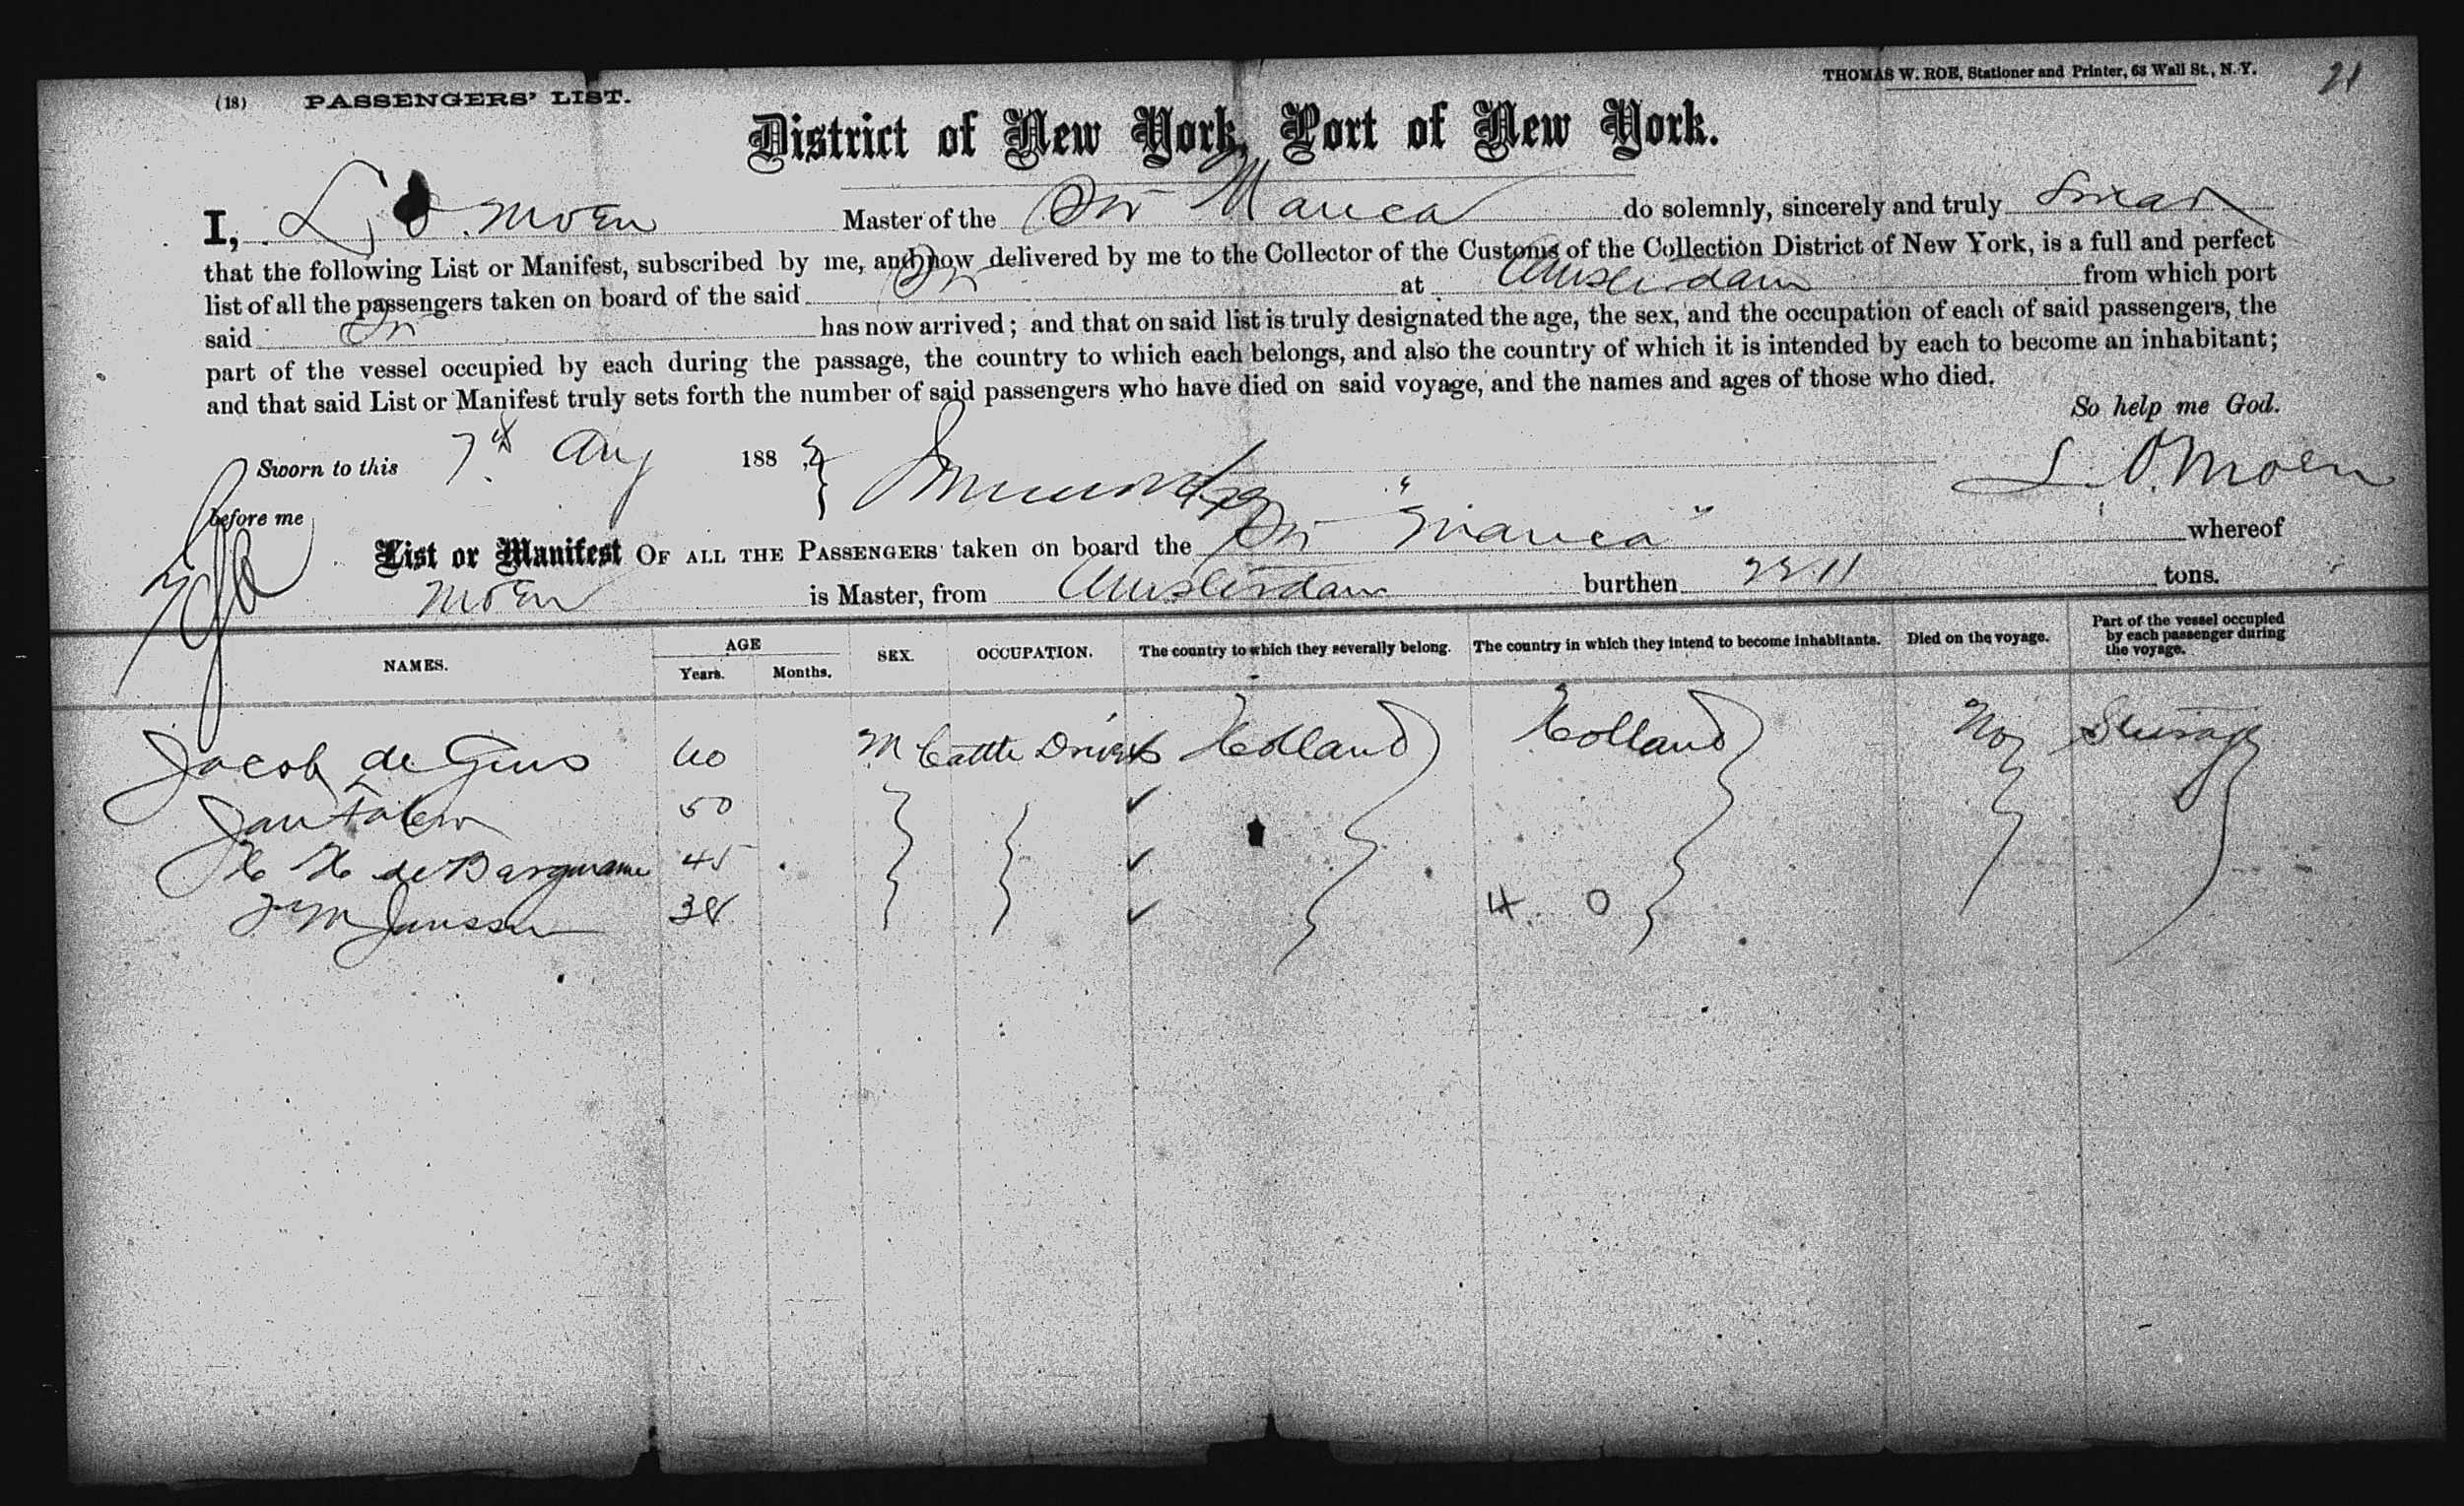 (18) PASSENGERS' LIST.
THOMAS W. ROE, Stationer and Printer, 63 Wall St., N. Y.
21
District of New York, Port of New York.
I, L. O. Moen Master of the Str Manca do solemnly, sincerely and truly swear
that the following List or Manifest, subscribed by me, and now delivered by me to the Collector of the Customs of the Collection District of New York, is a full and perfect
list of all the passengers taken on board of the said Str at Amsterdam from which port
said Str has now arrived; and that on said list is truly designated the age, the sex, and the occupation of each of said passengers, the
part of the vessel occupied by each during the passage, the country to which each belongs, and also the country of which it is intended by each to become an inhabitant;
and that said List or Manifest truly sets forth the number of said passengers who have died on said voyage, and the names and ages of those who died.
So help me God.
Sworn to this 7th Aug 188
L. O. Moen
before me
List or Manifest OF ALL THE PASSENGERS taken on board the Str "Manca" whereof
Moen is Master, from Amsterdam burthen 2211 tons.
NAMES. AGE Years. Months. SEX. OCCUPATION. The country to which they severally belong. The country in which they intend to become inhabitants. Died on the voyage. Part of the vessel occupied by each passenger during the voyage.
Jacob de 40 M Cattle Drivers Holland Holland No Steerage
Jan 50
de 45
Janssen 38 4 0